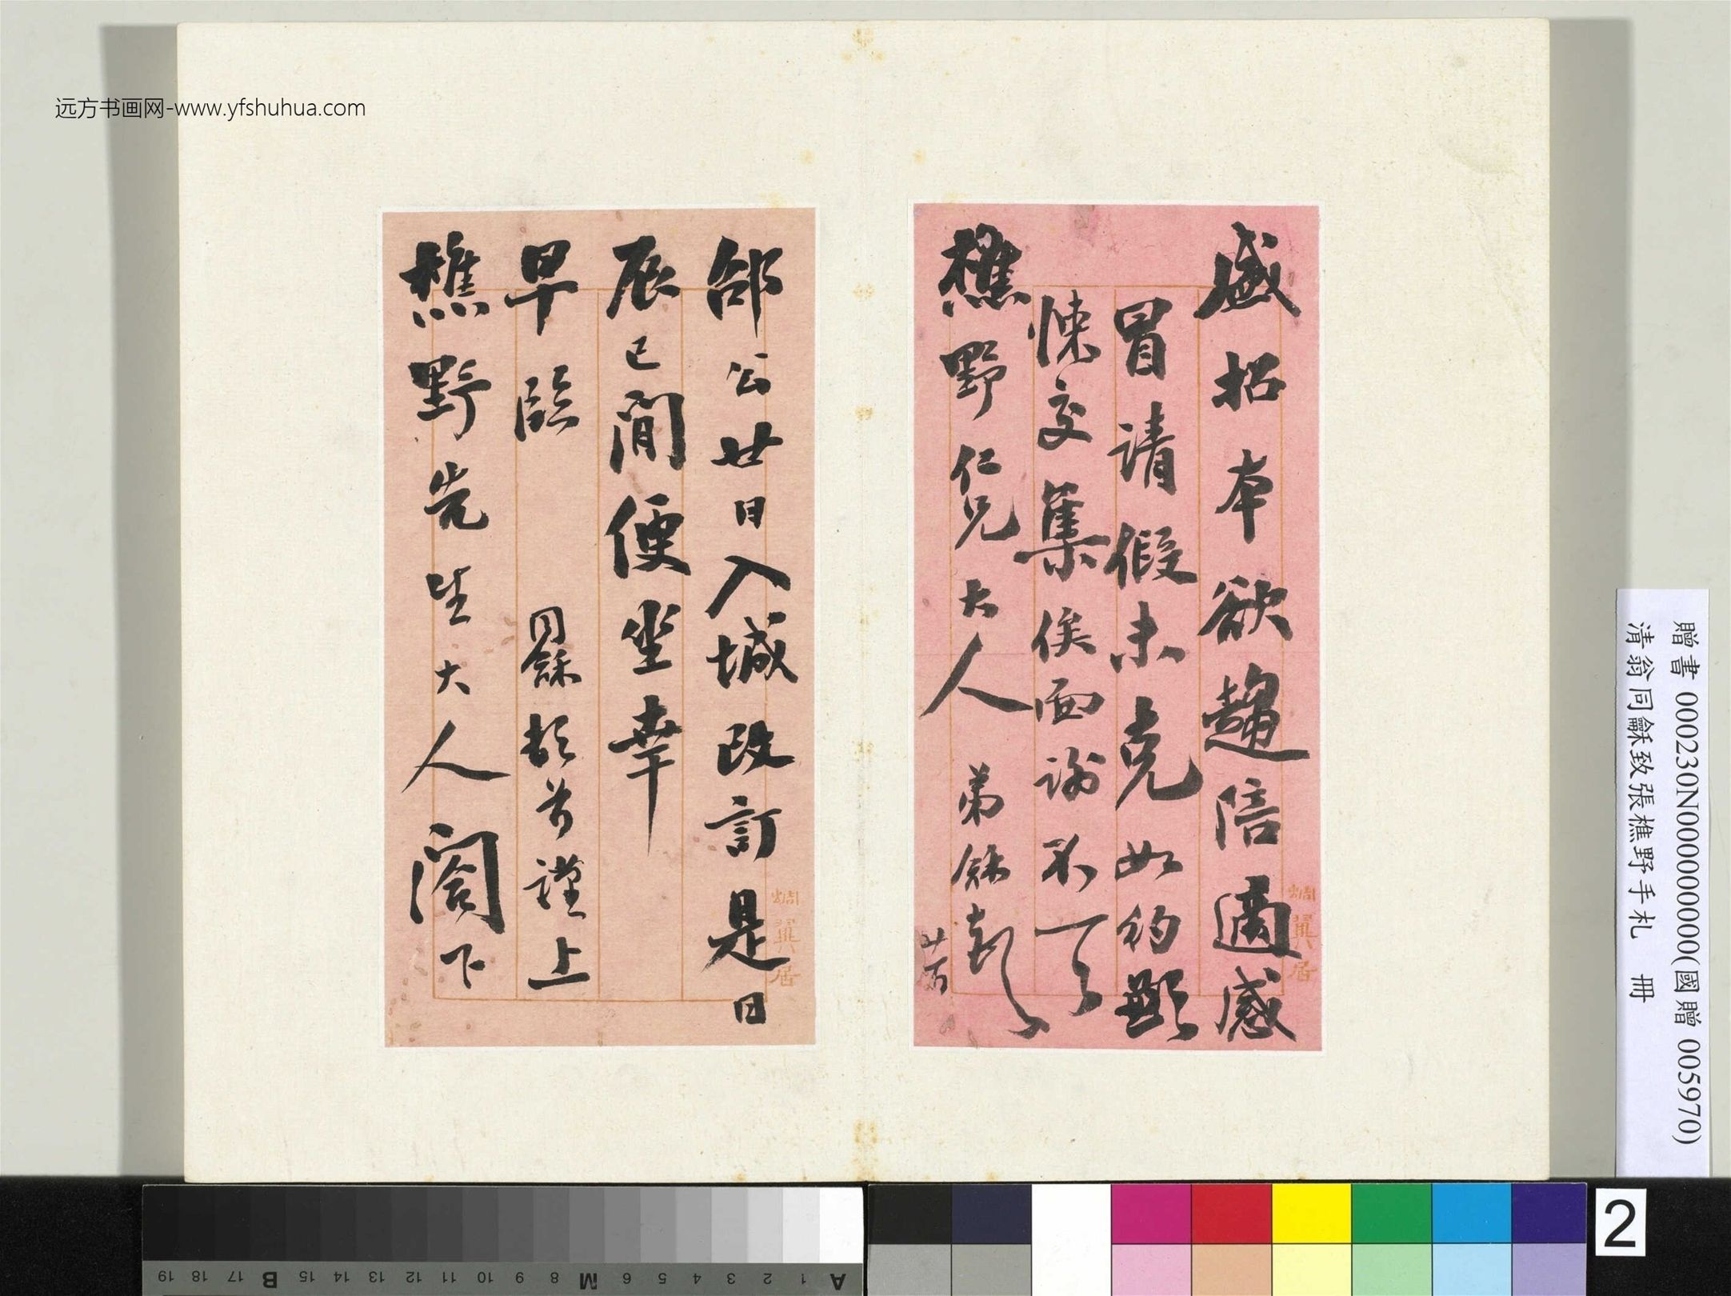 远方书画网-www.yfshuhua.com
盛招本欲趨陪適感
冒請假未克如約慙
悚交集俟面謝不一一
樵野仁兄大人 弟龢頓首
廿
郃公廿日入城改訂是日
辰巳間便坐幸
早臨 同龢頓首謹上
樵野先生大人閣下
贈書 000230N000000000(國贈 005970)
清翁同龢致張樵野手札 冊
2
A 1 2 3 4 5 6 7 8 M 9 10 11 12 13 14 15 B 17 18 19